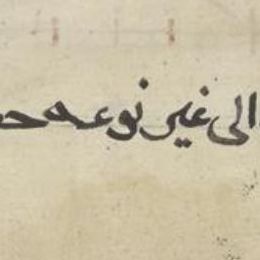 الى غير نوعه